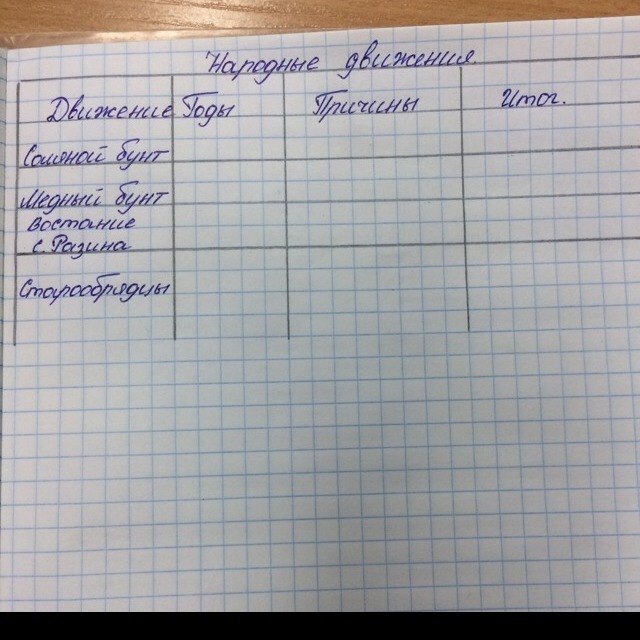 Народные движения.
Движение Годы Причины Итог.
Соляной бунт
Медный бунт
Востание
С. Разина
Старообрядцы